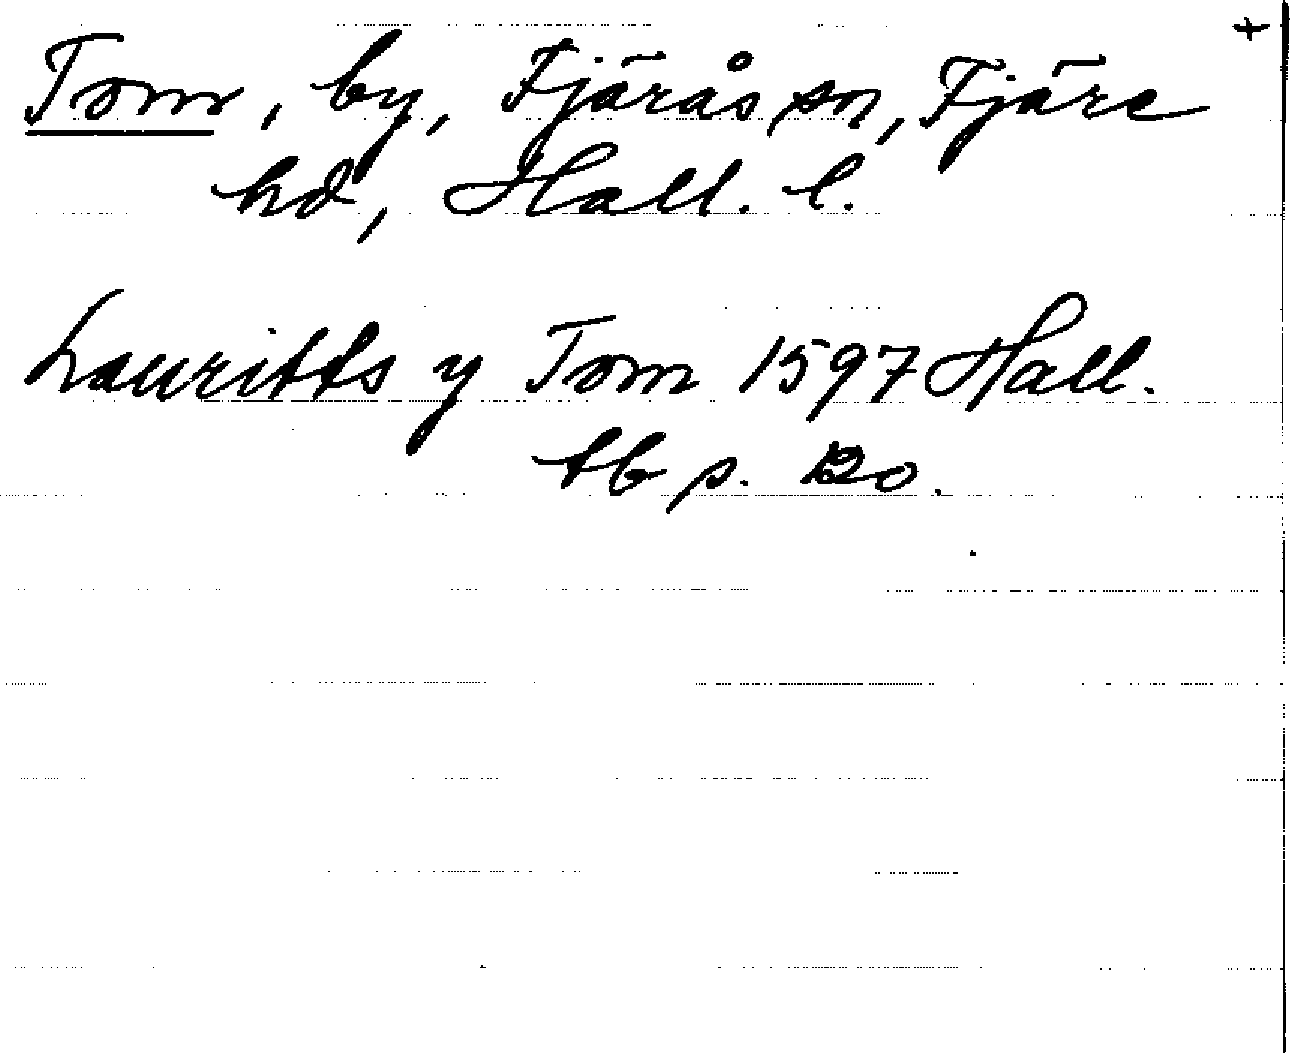 +
Tom, by, Fjärås sn, Fjäre
hd, Hall. l.
Lauritts y Tom 1597 Hall.
tb s. 120.